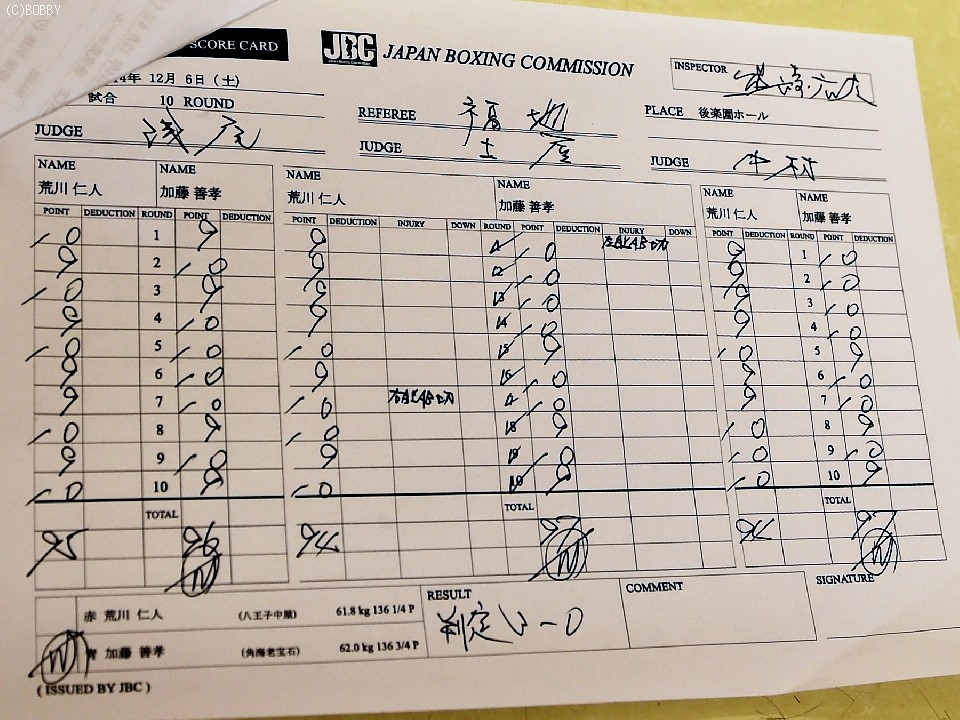 (C)BOBBY
SCORE CARD JBC JAPAN BOXING COMMISSION
INSPECTOR
14年 12月 6日 (土)
試合 10 ROUND
REFEREE 福地
PLACE 後楽園ホール
JUDGE 浅尾
JUDGE 土屋
JUDGE 中村
NAME 荒川 仁人 NAME 加藤 善孝
POINT DEDUCTION ROUND POINT DEDUCTION
10 1 9
9 2 10
10 3 9
9 4 10
10 5 10
9 6 10
9 7 10
10 8 9
9 9 10
10 10 9
TOTAL
95 96
W
NAME 荒川 仁人 NAME 加藤 善孝
POINT DEDUCTION INJURY DOWN ROUND POINT DEDUCTION INJURY DOWN
9 1 10
9 2 10
9 3 10
9 4 10
10 5 9
9 6 10
10 7 10
10 8 9
9 9 10
10 10 9
TOTAL
94 97
W
NAME 荒川 仁人 NAME 加藤 善孝
POINT DEDUCTION ROUND POINT DEDUCTION
9 1 10
9 2 10
9 3 10
9 4 10
10 5 9
9 6 10
9 7 10
10 8 9
10 9 10
10 10 9
TOTAL
94 97
W
赤 荒川 仁人 (八王子中屋) 61.8 kg 136 1/4 P
W 青 加藤 善孝 (角海老宝石) 62.0 kg 136 3/4 P
RESULT
判定 3-0
COMMENT
SIGNATURE
( ISSUED BY JBC )